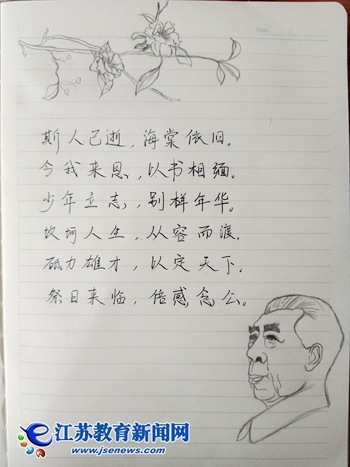 斯人已逝，海棠依旧。
今我来思，以书相缅。
少年立志，别样年华。
坎坷人生，从容而渡。
砥力雄才，以定天下。
祭日来临，倍感念公。
江苏教育新闻网
www.jsenews.com